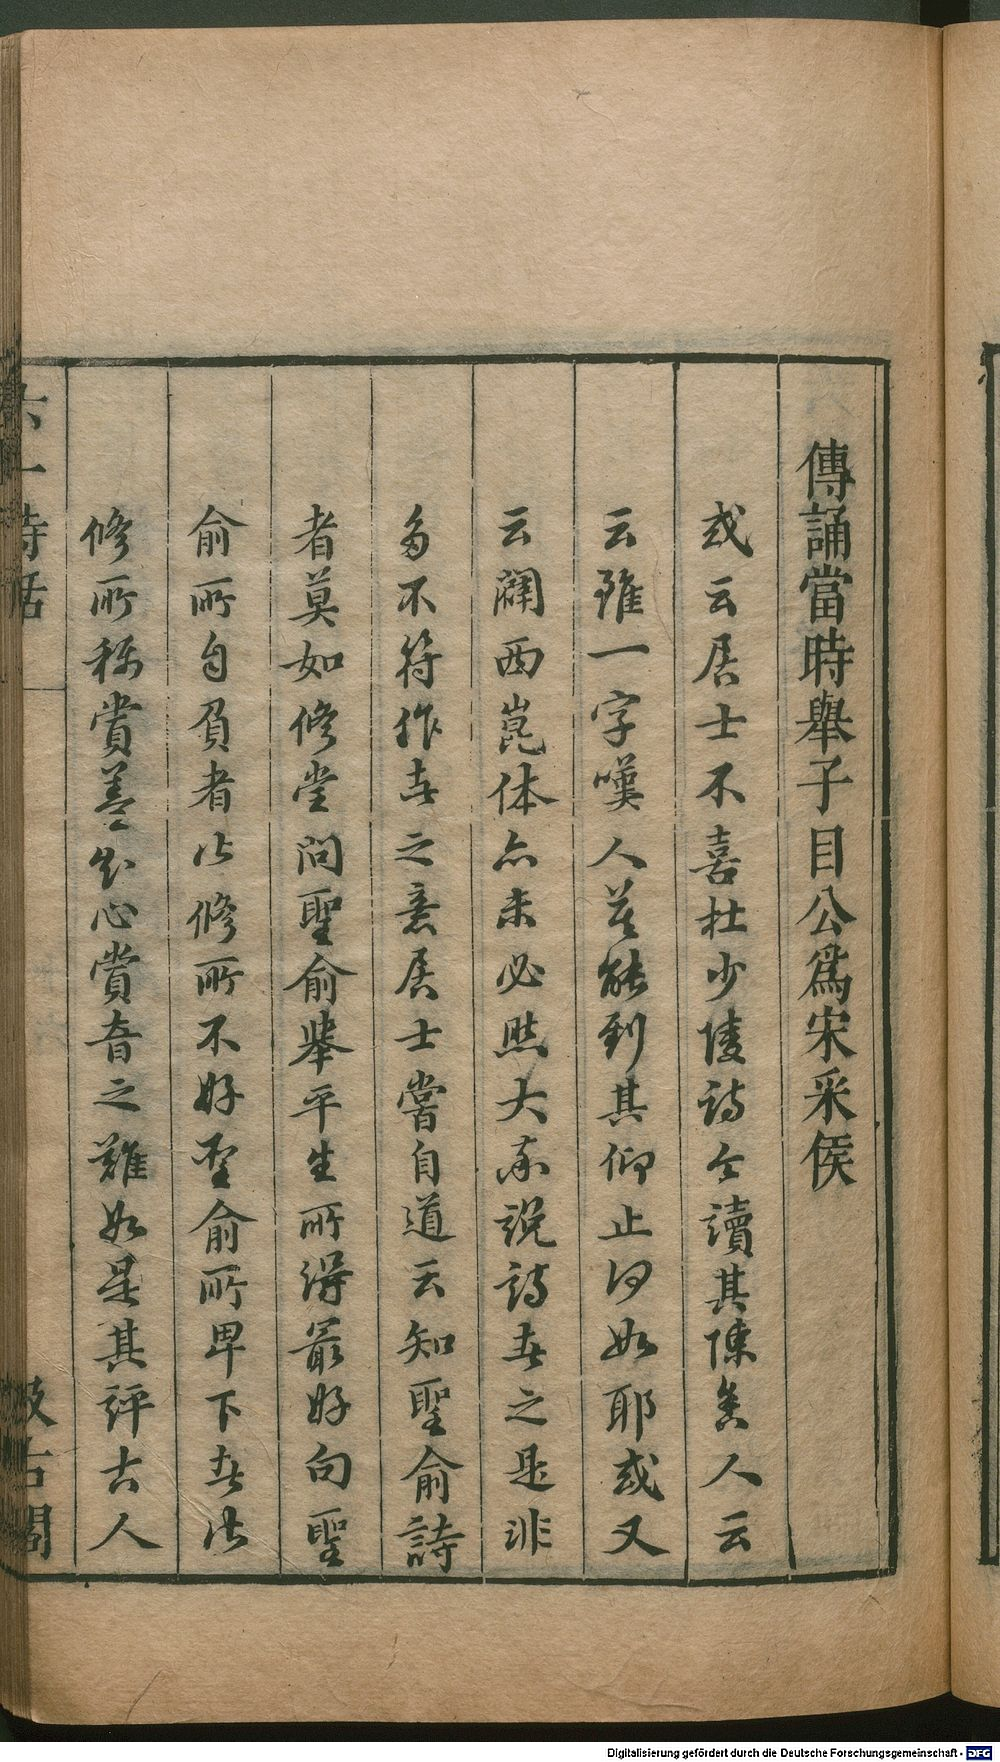 傳誦當時舉子目公爲宋采侯
或云居士不喜杜少陵詩今讀其陳舍人云
云雖一字嘆人莫能到其仰止何如耶或又
云闢西崑体亦未必然大率說詩者之是非
多不符作者之意居士嘗自道云知聖俞詩
者莫如修嘗問聖俞舉平生所得最好句聖
俞所自負者皆修所不好聖俞所卑下者皆
修所称賞蓋知心賞音之難如是其評古人
六一詩話
汲古閣
Digitalisierung gefördert durch die Deutsche Forschungsgemeinschaft - DFG